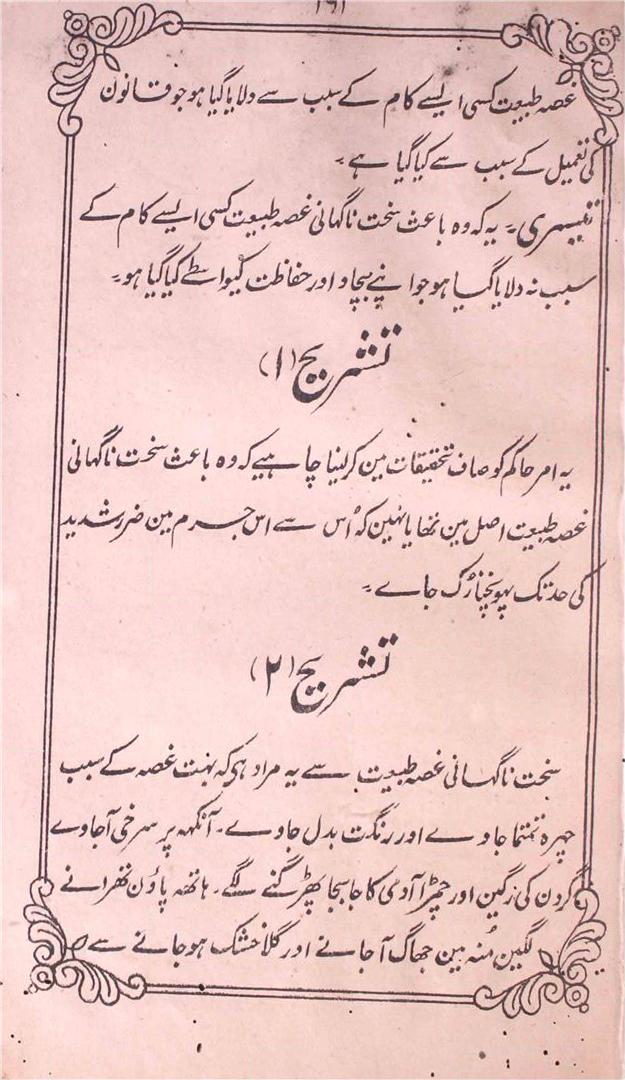 ۱۶۱
غصہ طبیعت کسی ایسے کام کے سبب سے دلایا گیا ہو جو قانون
کی تعمیل کے سبب سے کیا گیا ہے۔
تیسری۔ یہ کہ وہ باعث سخت ناگہانی غصہ طبیعت کسی ایسے کام کے
سبب نہ دلایا گیا ہو جو اپنے بچاو اور حفاظت کیواسطے کیا گیا ہو۔
تشریح (۱)
یہ امر حاکم کو صاف تحقیقات مین کر لینا چاہیے کہ وہ باعث سخت ناگہانی
غصہ طبیعت اصل مین تھا یا نہین کہ اُس سے اس جرم مین ضرر شدید
کی حد تک پہونچنا رُک جاے۔
تشریح (۲)
سخت ناگہانی غصہ طبیعت سے یہ مراد ہی کہ بہت غصہ کے سبب
چہرہ تمتما جاوے اور رنگت بدل جاوے۔ آنکھہ پر سرخی آ جاوے
گردن کی رگین اور چمڑا آدمی کا جا بجا پھڑکنے لگے۔ ہاتھہ پاوُن تھرانے
لگین مُنہ مین جھاگ آ جانے اور گلا خشک ہو جانے سے